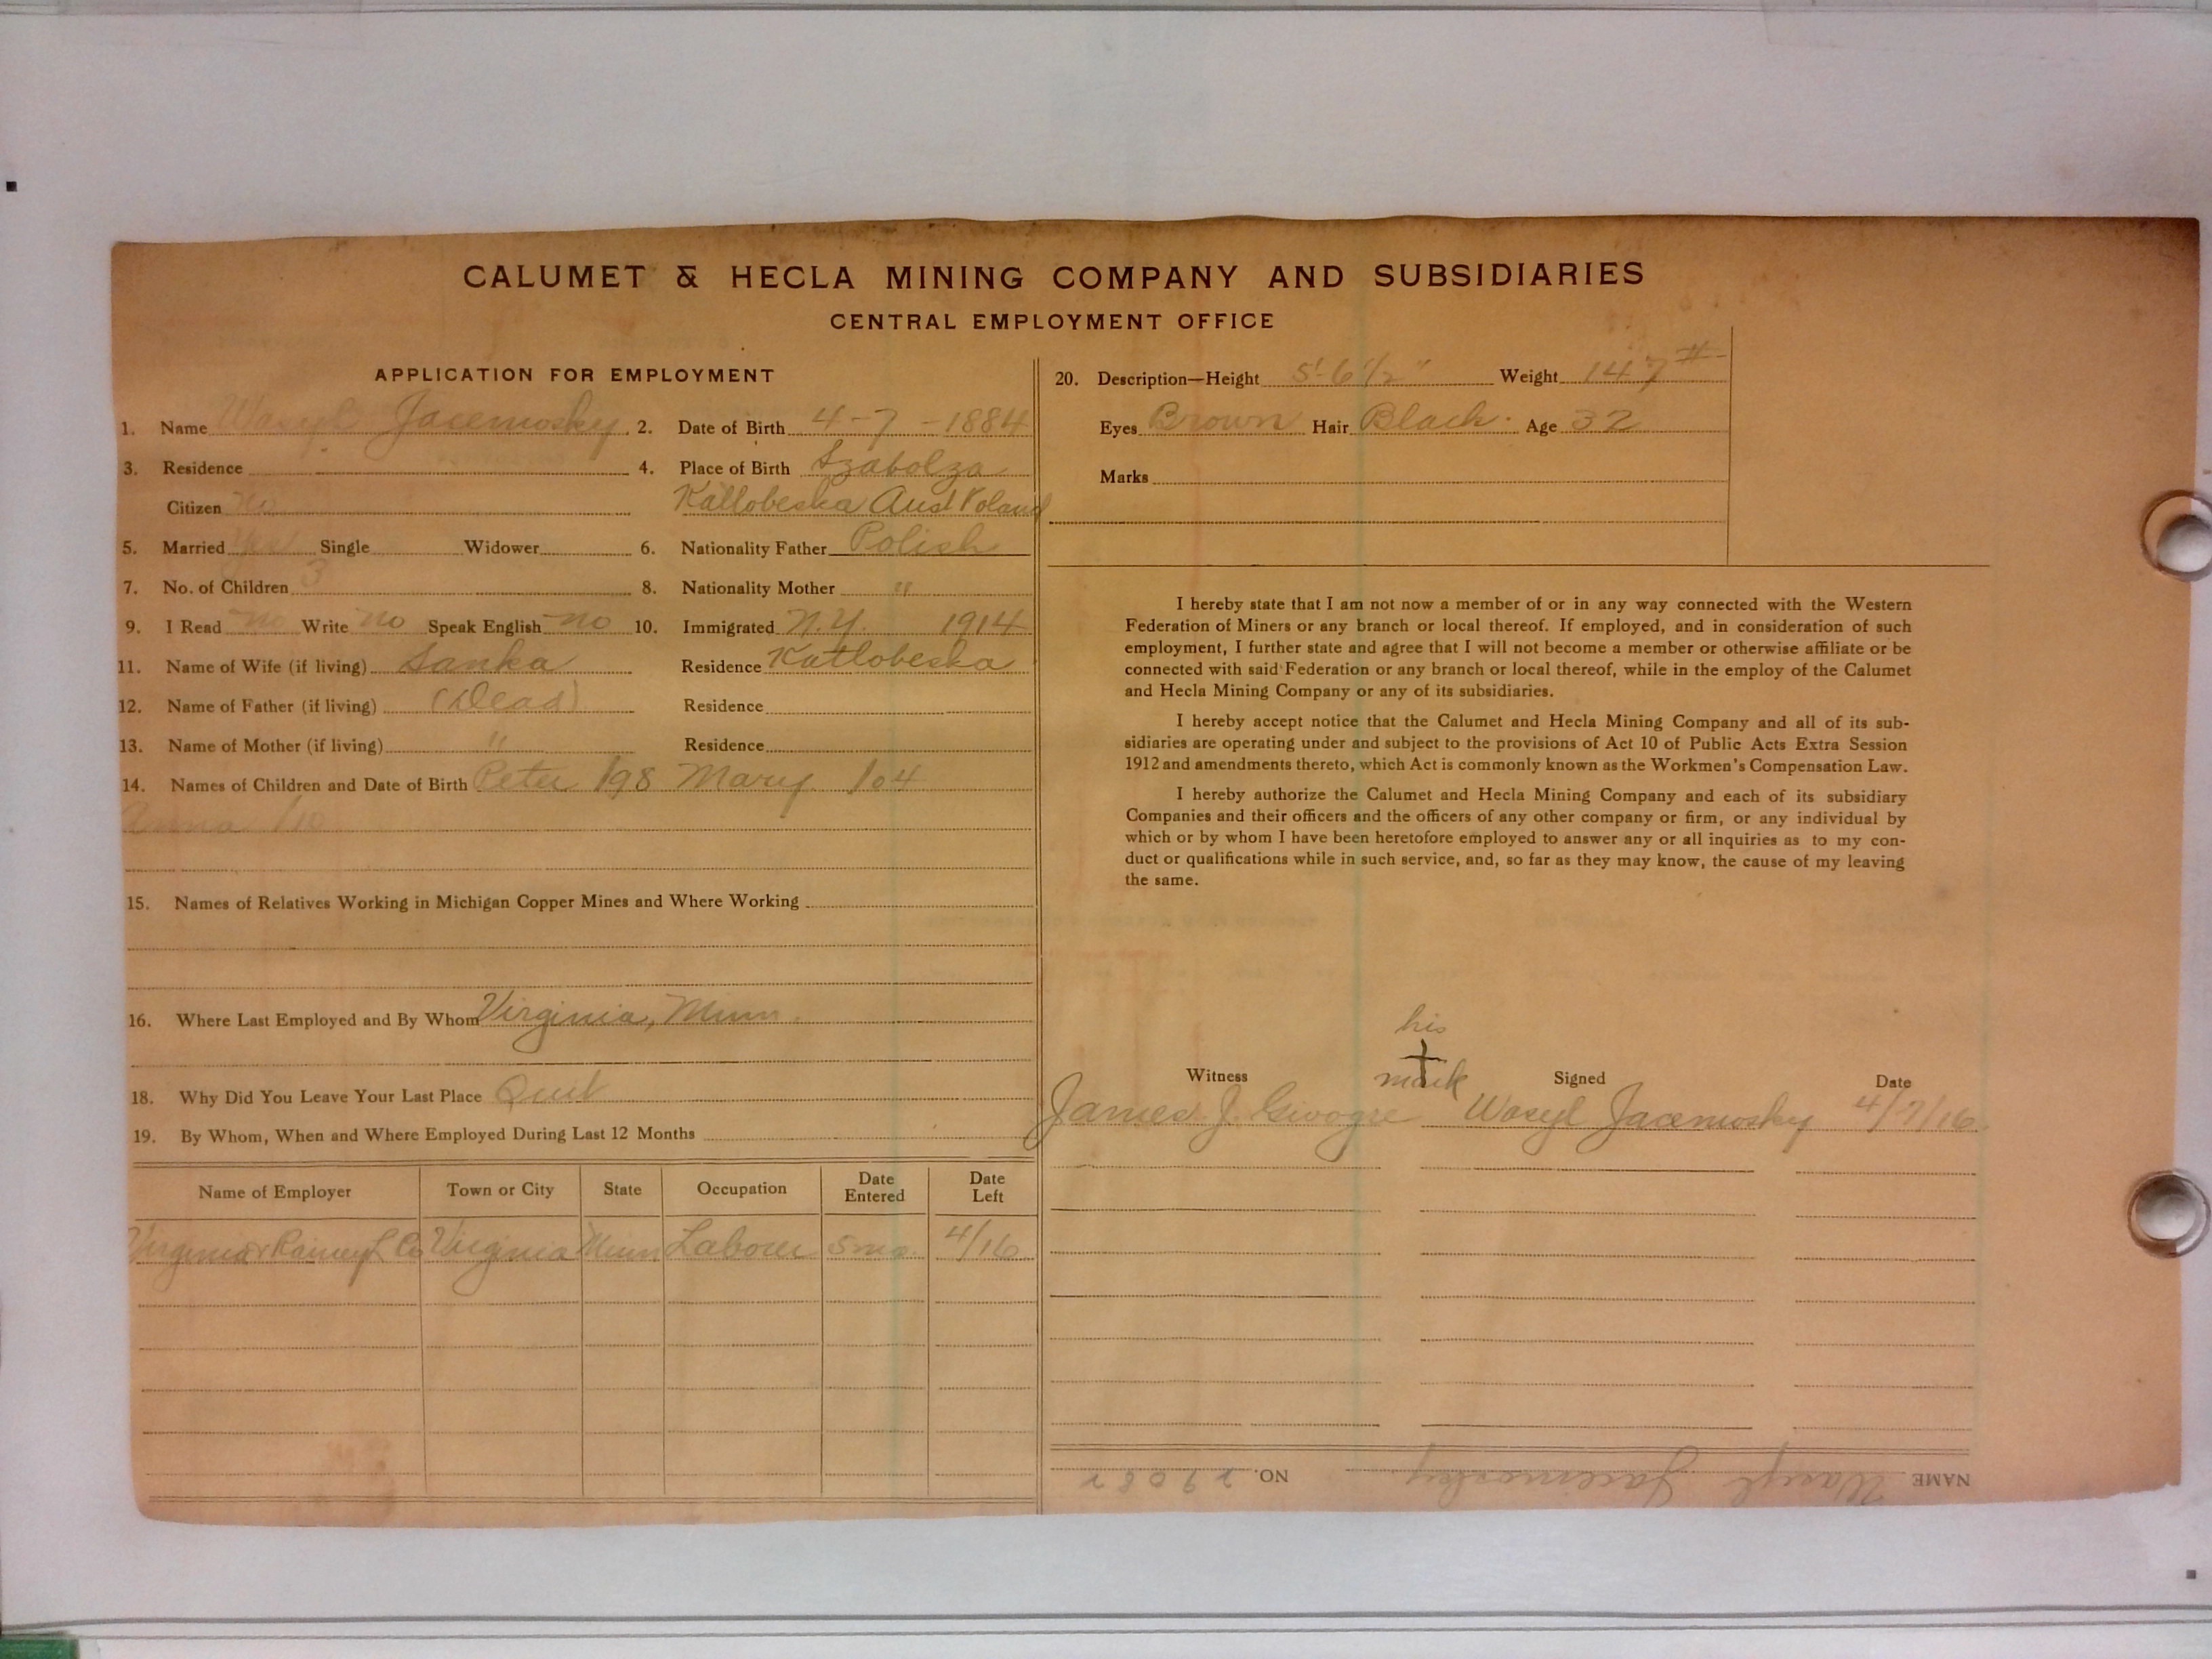 CALUMET & HECLA MINING COMPANY AND SUBSIDIARIES
CENTRAL EMPLOYMENT OFFICE
APPLICATION FOR EMPLOYMENT
1. Name Wasyl Jacemosky 2. Date of Birth 4-7-1884
3. Residence 4. Place of Birth Szabolza
Citizen no Katlobeska Aust Poland
5. Married yes Single Widower 6. Nationality Father Polish
7. No. of Children 3 8. Nationality Mother "
9. I Read no Write no Speak English no 10. Immigrated N.Y. 1914
11. Name of Wife (if living) Sanka Residence Katlobeska
12. Name of Father (if living) (Dead) Residence
13. Name of Mother (if living) " Residence
14. Names of Children and Date of Birth Peter /98 Mary /04
Anna /10
15. Names of Relatives Working in Michigan Copper Mines and Where Working
16. Where Last Employed and By Whom Virginia, Minn.
18. Why Did You Leave Your Last Place Quit
19. By Whom, When and Where Employed During Last 12 Months
Name of Employer Town or City State Occupation Date Entered Date Left
Virginia & Rainey L Co Virginia Minn Laborer 5 mo. 4/16
20. Description—Height 5'-6 1/2" Weight 147 #
Eyes Brown Hair Black Age 32
Marks
I hereby state that I am not now a member of or in any way connected with the Western
Federation of Miners or any branch or local thereof. If employed, and in consideration of such
employment, I further state and agree that I will not become a member or otherwise affiliate or be
connected with said Federation or any branch or local thereof, while in the employ of the Calumet
and Hecla Mining Company or any of its subsidiaries.
I hereby accept notice that the Calumet and Hecla Mining Company and all of its sub-
sidiaries are operating under and subject to the provisions of Act 10 of Public Acts Extra Session
1912 and amendments thereto, which Act is commonly known as the Workmen's Compensation Law.
I hereby authorize the Calumet and Hecla Mining Company and each of its subsidiary
Companies and their officers and the officers of any other company or firm, or any individual by
which or by whom I have been heretofore employed to answer any or all inquiries as to my con-
duct or qualifications while in such service, and, so far as they may know, the cause of my leaving
the same.
his
Witness mark Signed Date
James J. Wasyl Jacemosky 4/7/16
NAME Wasyl Jacemosky NO. 29082